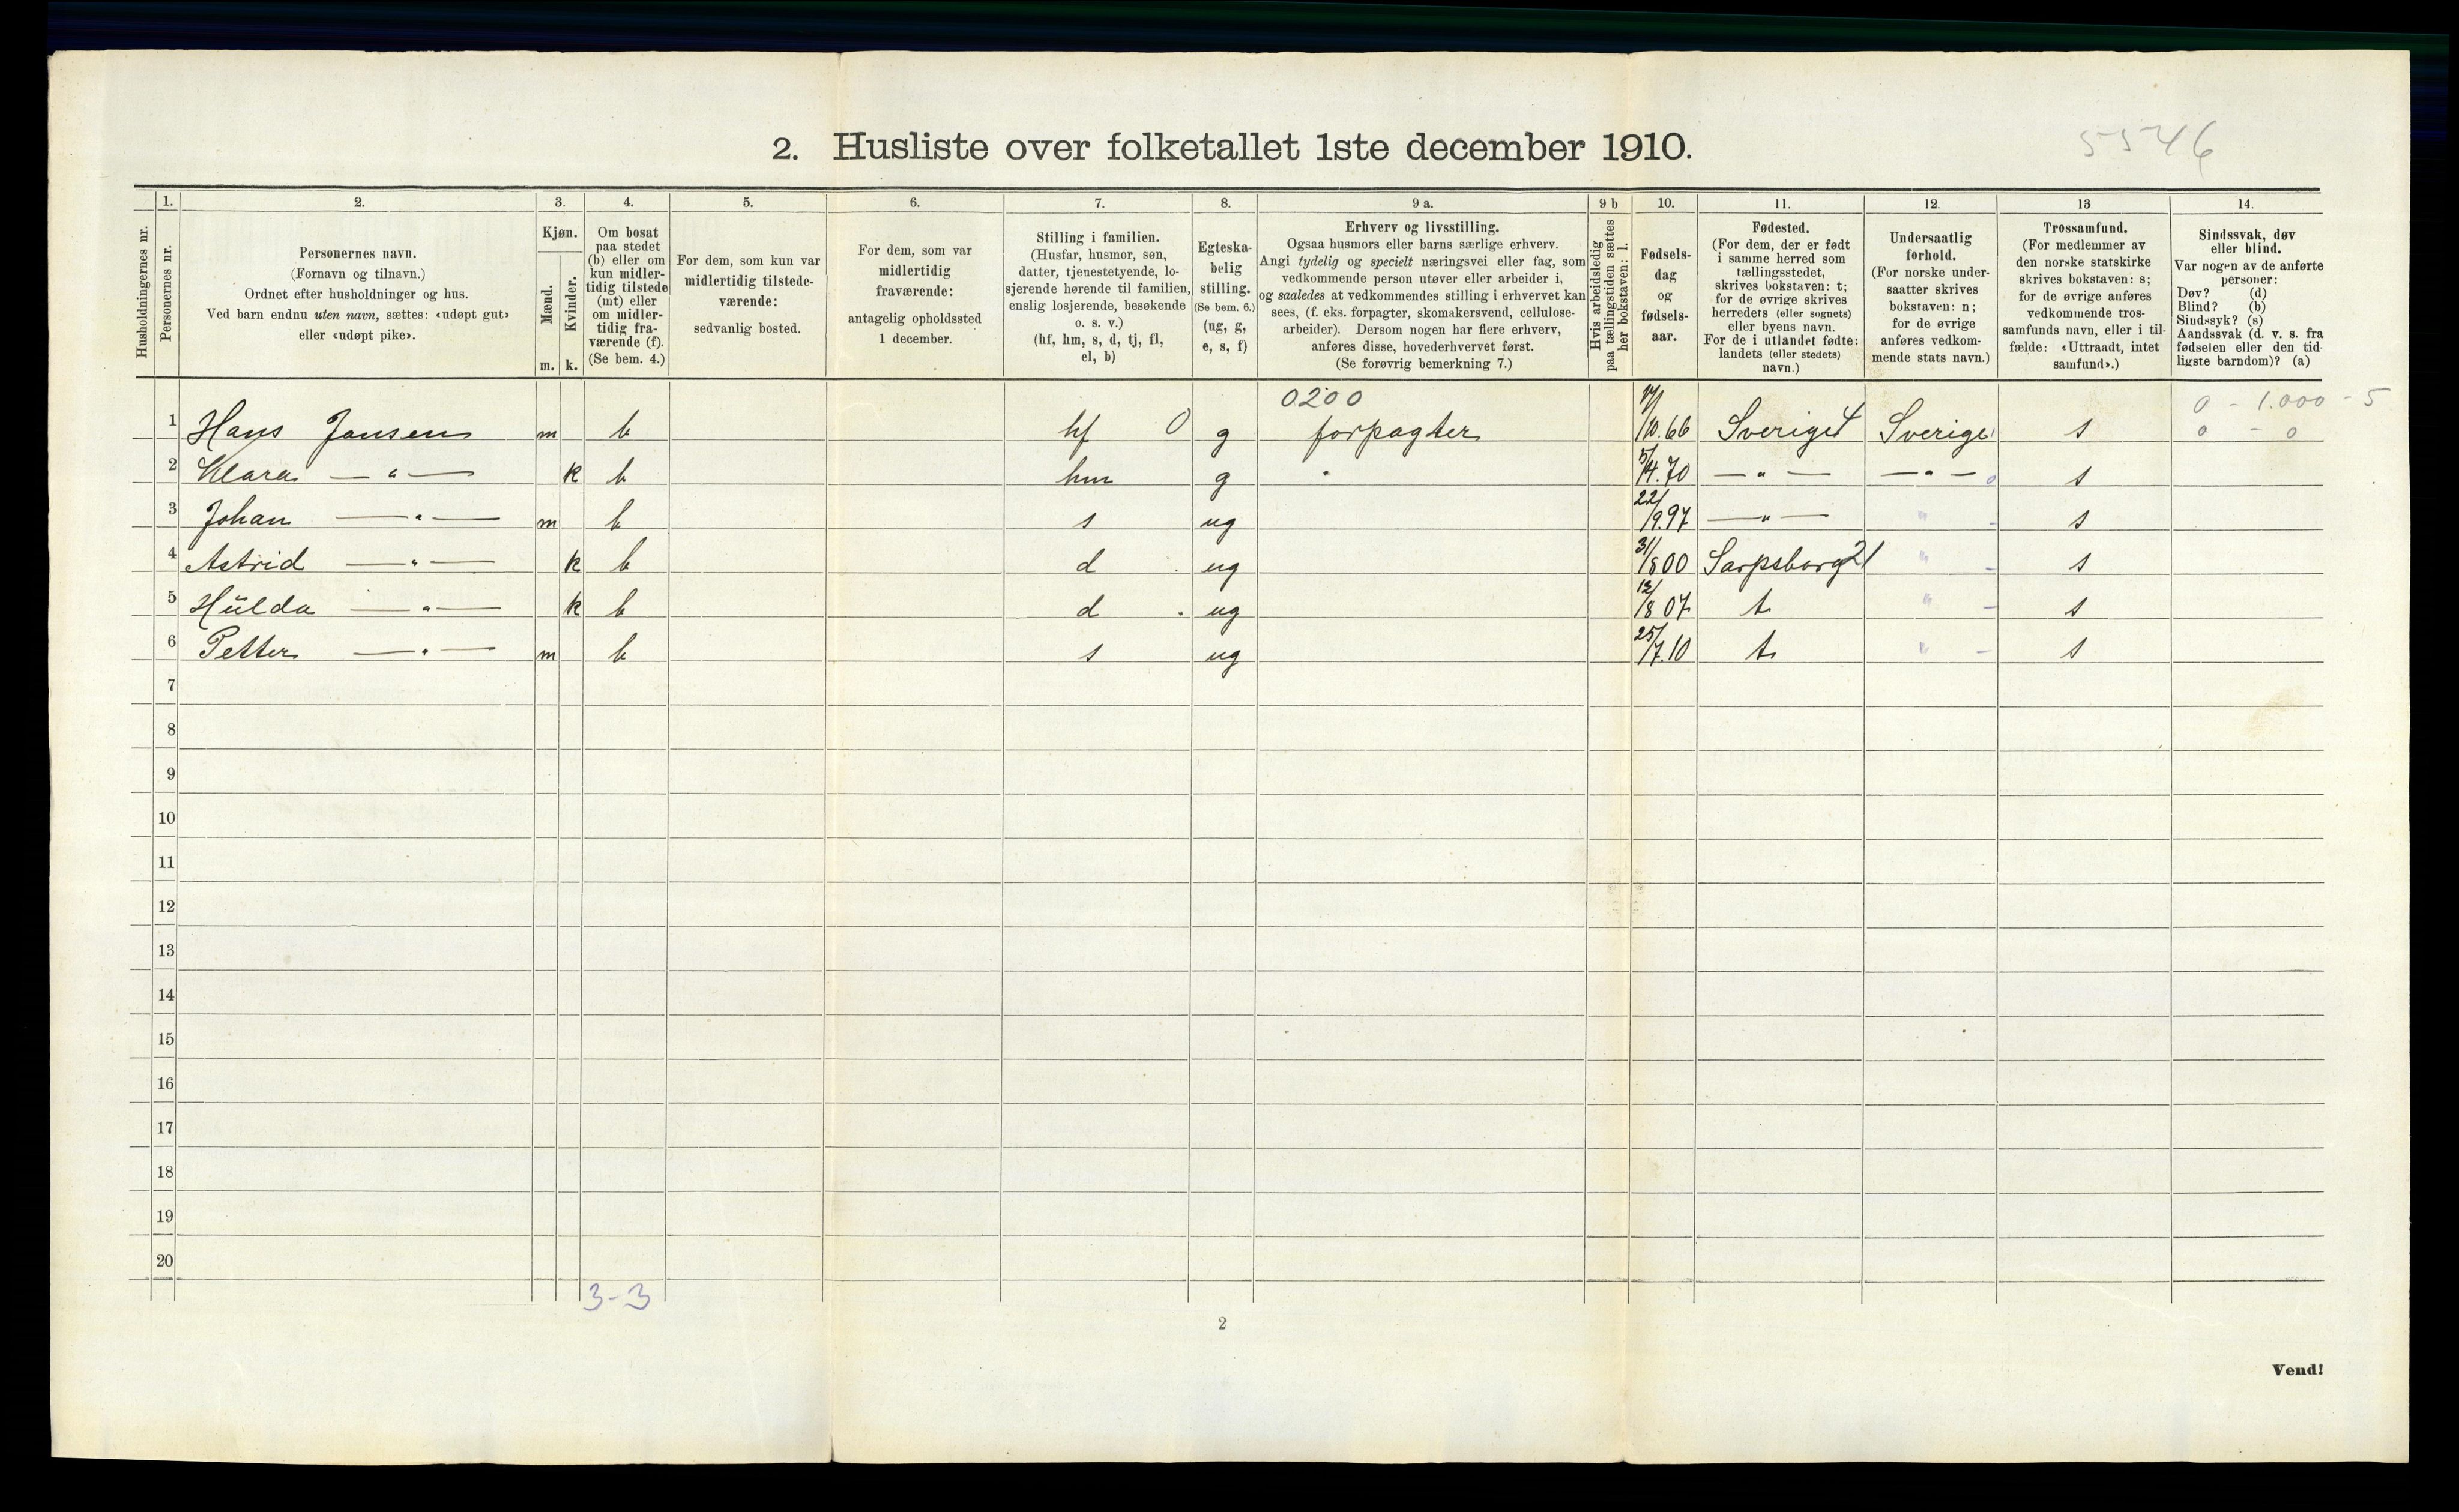 2. Husliste over folketallet 1ste december 1910.
5546
Husholdningernes nr.
1.
Personernes nr.
2.
Personernes navn.
(Fornavn og tilnavn.)
Ordnet efter husholdninger og hus.
Ved barn endnu uten navn, sættes: «udøpt gut»
eller «udøpt pike».
3.
Kjøn.
Mænd.
m.
Kvinder.
k.
4.
Om bosat
paa stedet
(b) eller om
kun midler-
tidig tilstede
(mt) eller
om midler-
tidig fra-
værende (f).
(Se bem. 4.)
5.
For dem, som kun var
midlertidig tilstede-
værende:
sedvanlig bosted.
6.
For dem, som var
midlertidig
fraværende:
antagelig opholdssted
1 december.
7.
Stilling i familien.
(Husfar, husmor, søn,
datter, tjenestetyende, lo-
sjerende hørende til familien,
enslig losjerende, besøkende
o. s. v.)
(hf, hm, s, d, tj, fl,
el, b)
8.
Egteska-
belig
stilling.
(Se bem. 6.)
(ug, g,
e, s, f)
9 a.
Erhverv og livsstilling.
Ogsaa husmors eller barns særlige erhverv.
Angi tydelig og specielt næringsvei eller fag, som
vedkommende person utøver eller arbeider i,
og saaledes at vedkommendes stilling i erhvervet kan
sees, (f. eks. forpagter, skomakersvend, cellulose-
arbeider). Dersom nogen har flere erhverv,
anføres disse, hovederhvervet først.
(Se forøvrig bemerkning 7.)
9 b
Hvis arbeidsledig
paa tællingstiden sættes
her bokstaven: l.
10.
Fødsels-
dag
og
fødsels-
aar.
11.
Fødested.
(For dem, der er født
i samme herred som
tællingsstedet,
skrives bokstaven: t;
for de øvrige skrives
herredets (eller sognets)
eller byens navn.
For de i utlandet fødte:
landets (eller stedets)
navn.)
12.
Undersaatlig
forhold.
(For norske under-
saatter skrives
bokstaven: n;
for de øvrige
anføres vedkom-
mende stats navn.)
13
Trossamfund.
(For medlemmer av
den norske statskirke
skrives bokstaven: s;
for de øvrige anføres
vedkommende tros-
samfunds navn, eller i til-
fælde: «Uttraadt, intet
samfund».)
14.
Sindssvak, døv
eller blind.
Var nogen av de anførte
personer:
Døv? (d)
Blind? (b)
Sindssyk? (s)
Aandssvak (d. v. s. fra
fødselen eller den tid-
ligste barndom)? (a)
0200 0 - 1.000 - 5
1 Hans Jansen m b hf 0 g forpagter /10.66 Sverige 4 Sverige s 0 - 0
2 Klara — " — k b hm g 5/4.70 — " — — " — s
3 Johan — " — m b s ug 22/9.97 — " — " s
4 Astrid — " — k b d ug 31/8 00 Sarpsborg 21 " s
5 Hulda — " — k b d ug 12/8 07 t " s
6 Petter — " — m b s ug 25/7.10 t " s
7
8
9
10
11
12
13
14
15
16
17
18
19
20
3-3
2
Vend!